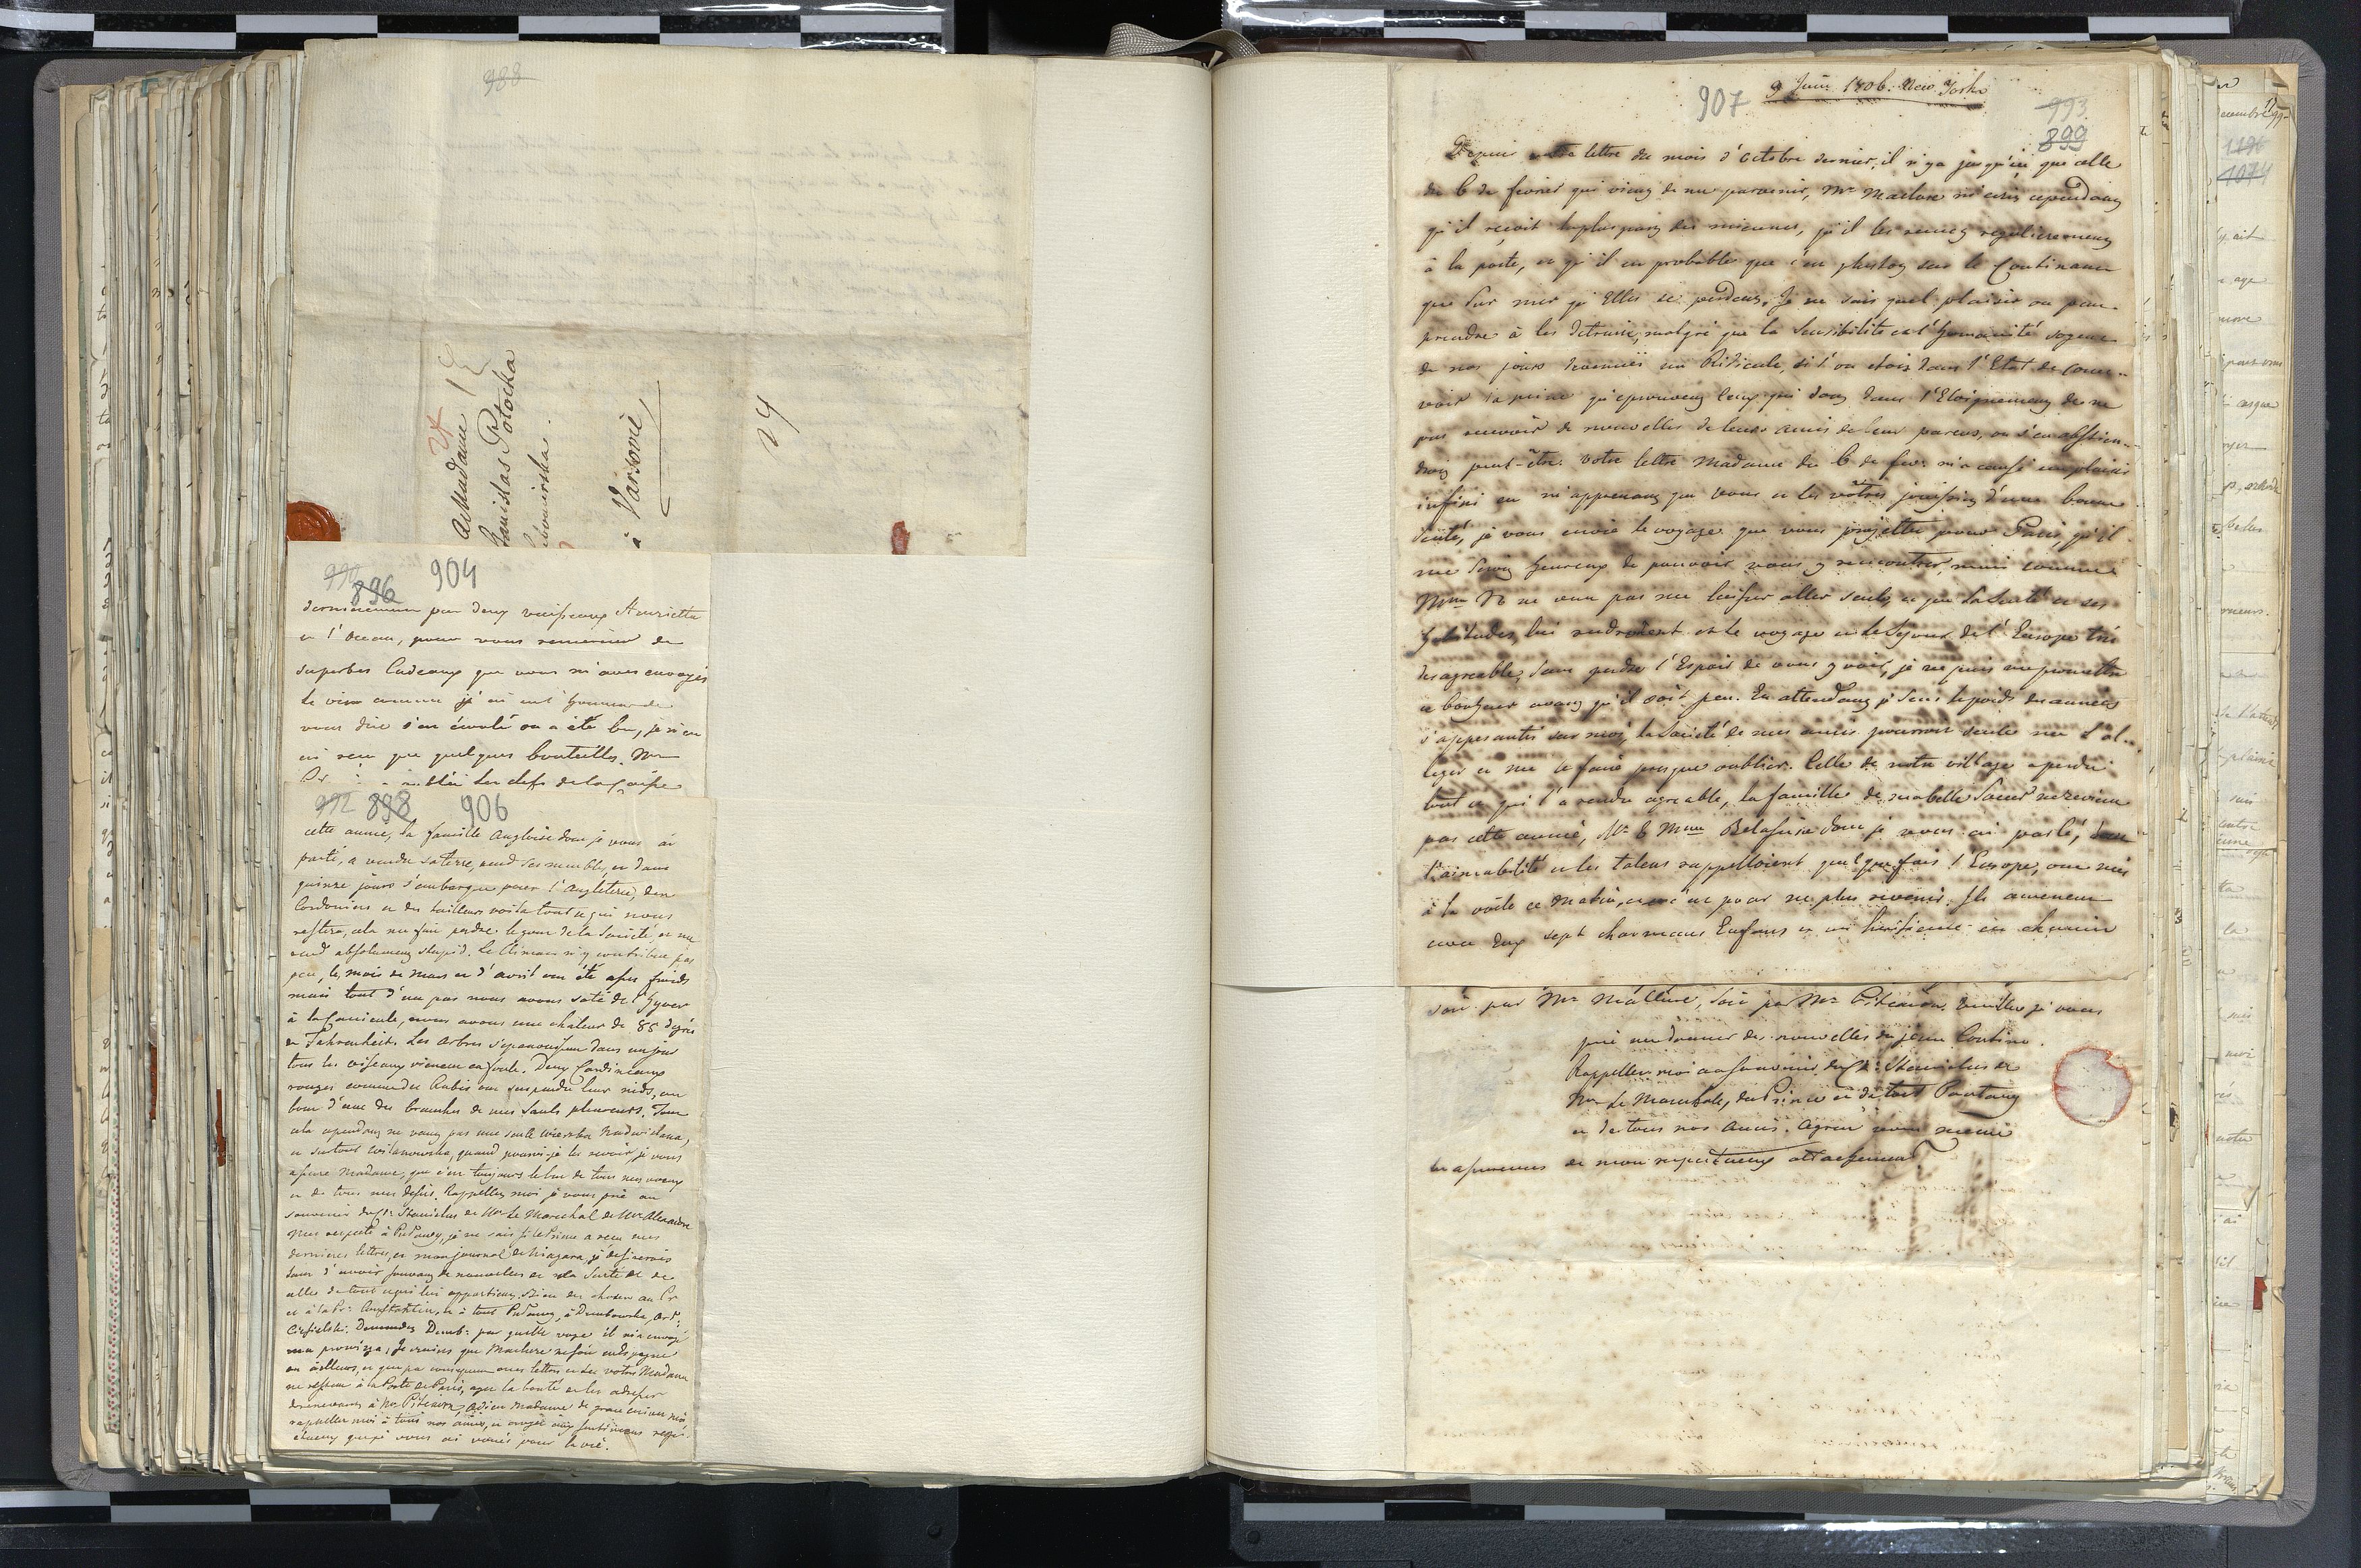 988
A Madame
Stanislas Potocka
Lubomirska.
à Varsovie
24
990 896 904
dernierement par deux vaisseaux Henrietta
et l'Ocean, pour vous remercier des
superbes Cadeaux que vous m'avez envoyés
le vin comme j'ai eu l'honneur de
vous dire s'en écoulé ou a été bu, je n'en
ai reçu que quelques bouteilles. Mr
oublié les clefs de la Caisse
992 898 906
cette année, la famille Angloise dont je vous ai
parlé, a vendu sa terre, vend ses meubles, et dans
quinze jours s'embarque pour l'Angleterre, des
Cordoniers et des tailleurs voila tout ce qui nous
restera, cela me fait perdre le gout de la Societé, et me
rend absolument stupid. Le Climat n'y contribue pas
peu, les mois de Mars et d'avril ont été assez froids
mais tout d'un pas nous avons sauté de l'hyver
à la Canicule, nous avons une chaleur de 85 degrés
de Fahrenheit. Les Arbres s'epanouissent dans un jour
tous les oiseaux viennent en foule. Deux Cardineaux
rouges comme des Rubis ont suspendu leur nids, au
bout d'une des branches de mes Sauls pleureurs. Tout
cela cependant ne vaut pas une seule wierzba Nadwislana,
et surtout wilanowska, quand pourai-je les revoir, je vous
assure Madame, que c'est toujours le but de tous mes voeux
et de tous mes desirs. Rappellez moi je vous prie au
souvenir du Ct Stanislas de Mr le Marechal de Mr Alexandre
Mes respects à Pulawy, je ne sais si le Prince a reçu mes
dernieres lettres, et mon journal de Niagara, je desirerois
bien d'avoir souvent de nouvelles de sa Santé et de
celles de tout ce qui lui appartient. Bien des choses au Pr
et à la Pr: Constantin, à tout Pulawy, à Dembowska, Ort:
Ciesielski. Demandez Demb: par quelle voye il m'a envoyé
ma prowizya, Je crains que Maclure ne soit en Espagne
ou ailleurs, et que par consequent mes lettres et les votres Madame
ne restent à la Poste de Paris, ayez la bonté de les adresser
dorenavant à Mr Pitcairn, adieu Madame de grace ecrivez moi
rappellez moi à tous nos amis, et croyez aux sentimens respe-
ctueux que je vous ai voués pour la vie.
9 Juin 1806. New Yorke
907
993
899
Depuis votre lettre du mois d'Octobre dernier, il n'y a jusqu'ici que celle
du 6 de fevrier qui vient de me parvenir, Mr Maclure m'ecrit cependant
qu'il reçoit la pluspart des miennes, qu'il les remet regulierement
à la poste, et qu'il est probable que c'est plustot sur le Continent
que Sur mer qu'Elles se perdent. Je ne sais quel plaisir on peut
prendre à les detruire, malgré que la Sensibilité et l'humanité soyent
de nos jours devenues un Ridicule, si l'on etoit dans l'Etat de Conce-
voir la peine qu'eprouvent Ceux qui sont dans l'Eloignement de ne
pas recevoir de nouvelles de leurs amis de leur parens, on s'en abstien-
droit peut-être. Votre lettre Madame du 6 de fev: m'a causé un plaisir
infini en m'apprenant que Vous et les vôtres jouissez d'une bonne
Santé, je vous envie le voyage que vous projettez pour Paris, qu'il
me seroit heureux de pouvoir vous y rencontrer, mais comme
Mme N ne veut pas me laisser aller seul, et que la Santé et ses
habitudes, lui rendroient et le voyage et le Sejour de l'Europe très
desagreable, sans perdre l'Espoir de vous y voir, je ne puis me promettre
ce bonheur avant qu'il soit peu. En attendant je sens le poids des années
s'appesantir sur moi, la Societé de mes amis pourroit seule me l'al-
leger et me le faire presque oublier. Celle de notre village a perdu
tout ce qui l'a rendu agreable, la famille de ma belle Soeur ne revient
pas cette année, Mr & Mme Belasise dont je vous ai parlé, dont
l'aimabilité et les talens rappelloient quelque fois l'Europe, ont mis
à la voile ce matin, et c'est pour ne plus revenir. Ils amenent
avec Eux sept charmans Enfans et un huitieme en chemin
soit par Mr Maclure, soit par Mr Pitcairn. Veuillez je vous
prie me donner des nouvelles du jeune Contino.
Rappellez moi au souvenir du Ct: Stanislas de
Mr le Marechale, du Prince et de tout Pulawy
et de tous nos Amis. Agréez vous meme
les assurances de mon respectueux attachement